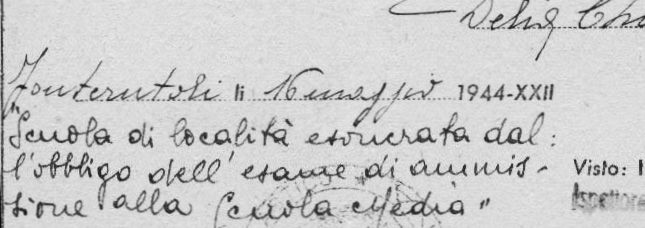 Delia
Fonterutoli li 16 maggio 1944-XXII
"Scuola di località esonerata dal:
l'obbligo dell'esame di ammis-
sione alla Scuola Media"
Visto: I
Ispettore